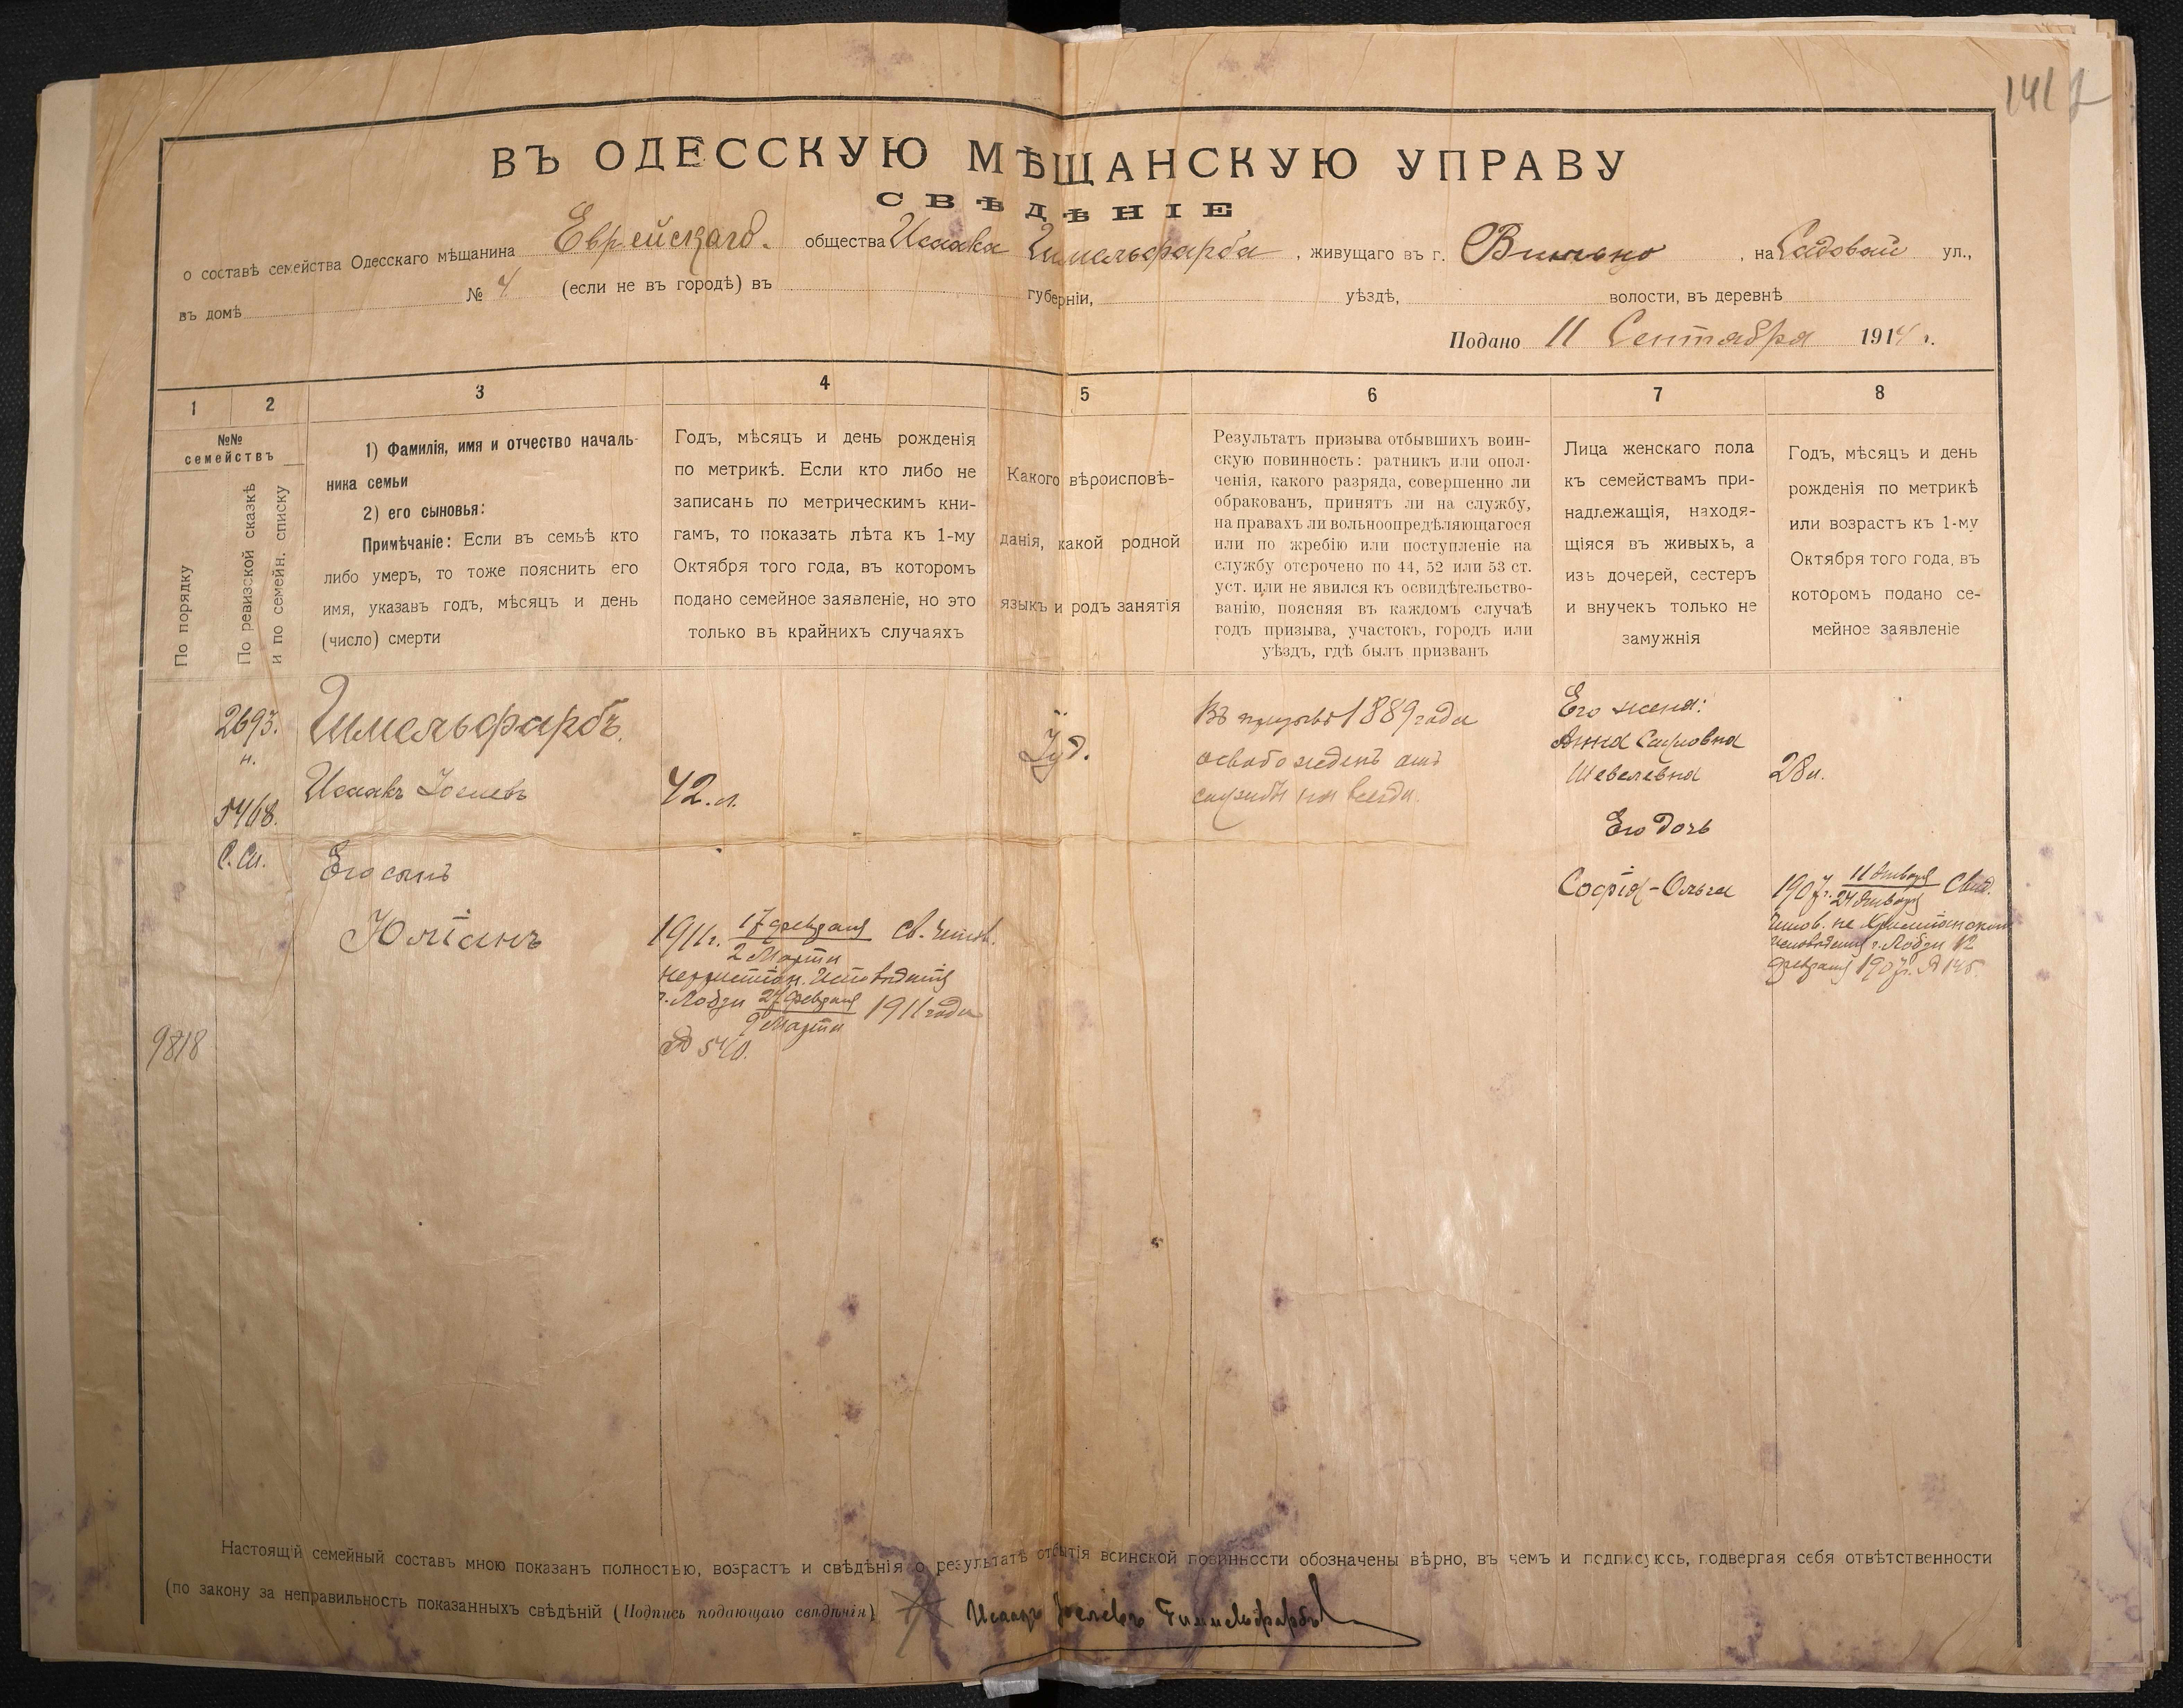 141
ВЪ ОДЕССКУЮ МѢЩАНСКУЮ УПРАВУ
СВѢДѢНІЕ
о составѣ семейства Одесскаго мѣщанина Еврейскаго общества Исаака Гимельфарба, живущаго въ г. Вильно, на Садовой ул.,
въ домѣ № 4 (если не въ городѣ) въ губерніи, уѣздѣ, волости, въ деревнѣ
Подано 11 Сентября 1914 г.
1 2 3 4 5 6 7 8
№№ семействъ
По порядку
По ревизской сказкѣ
и по семейн. списку
1) Фамилія, имя и отчество началь-
ника семьи
2) его сыновья:
Примѣчаніе: Если въ семьѣ кто
либо умеръ, то тоже пояснить его
имя, указавъ годъ, мѣсяцъ и день
(число) смерти
Годъ, мѣсяцъ и день рожденія
по метрикѣ. Если кто либо не
записанъ по метрическимъ кни-
гамъ, то показать лѣта къ 1-му
Октября того года, въ которомъ
подано семейное заявленіе, но это
только въ крайнихъ случаяхъ
Какого вѣроисповѣ-
данія, какой родной
языкъ и родъ занятія
Результатъ призыва отбывшихъ воин-
скую повинность: ратникъ или опол-
ченія, какого разряда, совершенно ли
обракованъ, принятъ ли на службу,
на правахъ ли вольноопредѣляющагося
или по жребію или поступленіе на
службу отсрочено по 44, 52 или 53 ст.
уст. или не явился къ освидѣтельство-
ванію, поясняя въ каждомъ случаѣ
годъ призыва, участокъ, городъ или
уѣздъ, гдѣ былъ призванъ
Лица женскаго пола
къ семействамъ при-
надлежащія, находя-
щіяся въ живыхъ, а
изъ дочерей, сестеръ
и внучекъ только не
замужнія
Годъ, мѣсяцъ и день
рожденія по метрикѣ
или возрастъ къ 1-му
Октября того года, въ
которомъ подано се-
мейное заявленіе
2693.
н.
5468.
С. Сп.
9818
Гимельфарбъ.
Исаакъ Іосиевъ
Его сынъ
Юліанъ
42. л.
1911 г. 17 февраля св.
2 Марта
г. Лодзи 24 февраля 1911 года
9 Марта
№ 540.
Іуд.
Въ призывѣ 1889 года
освобожденъ отъ
службы на всегда.
Его жена:
Анна
Шевелевна
Его дочь
Софія-Ольга
28 л.
1907 г. 11 Января Свид.
24 Января
не Христіанскому
г. Лодзи 12
февраля 1907 г. № 145.
Настоящій семейный составъ мною показанъ полностью, возрастъ и свѣдѣнія о результатѣ отбытія воинской повинности обозначены вѣрно, въ чемъ и подписуюсь, подвергая себя отвѣтственности
(по закону за неправильность показанныхъ свѣдѣній (Подпись подающаго свѣдѣнія) Исаакъ Гиммельфарбъ